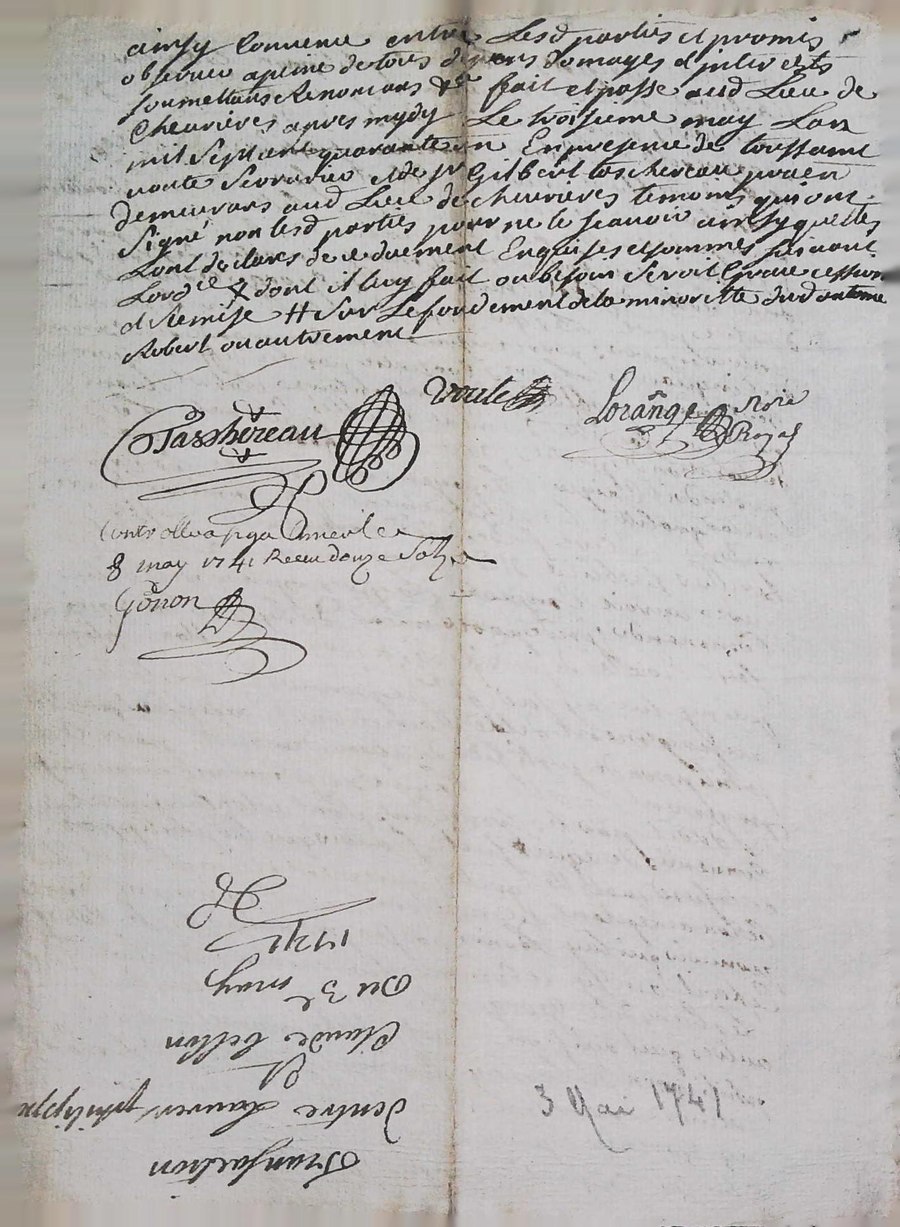 ainsy Convenu entre Lesd parties et promis
observer a peine de tous depens domages et interests
soumettans Renoncans &ca fait et passé aud Lieu de
Cheurières apres mydy Le troisieme may Lan
mil Sept cent quarante un En presence de toussaint
voute Serrurier et de sr Gilbert taschereau
demeurans aud Lieu de cheurières temoins qui ont
Signé non lesd parties pour ne le scavoir ainsy quelles
Lont declare de ce duement Enquises et sommes suivant
Lordce dont il luy fait ou besoin Seroit cession
et Remise # Sur Le fondement de la minoritte dud antoine
Robert ou autrement
voute
Taschereau
Lorange Nore
Royal
Controlle a
8 may 1741 Receu douze Sols
Gonon
Transaction
dentre Laurent philippe
et
Claude
Du 3e may
1741
3 Mai 1741